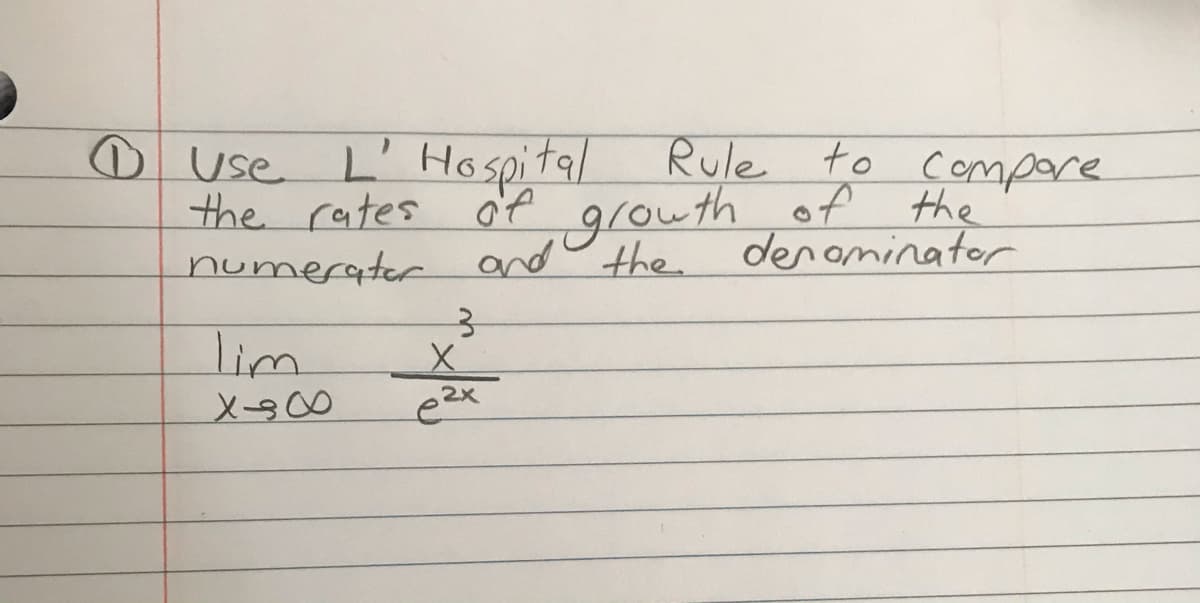 ① Use L' Hospital Rule to compare
the rates of growth of the
numerator and the denominator
lim x³
x→∞ e²ˣ